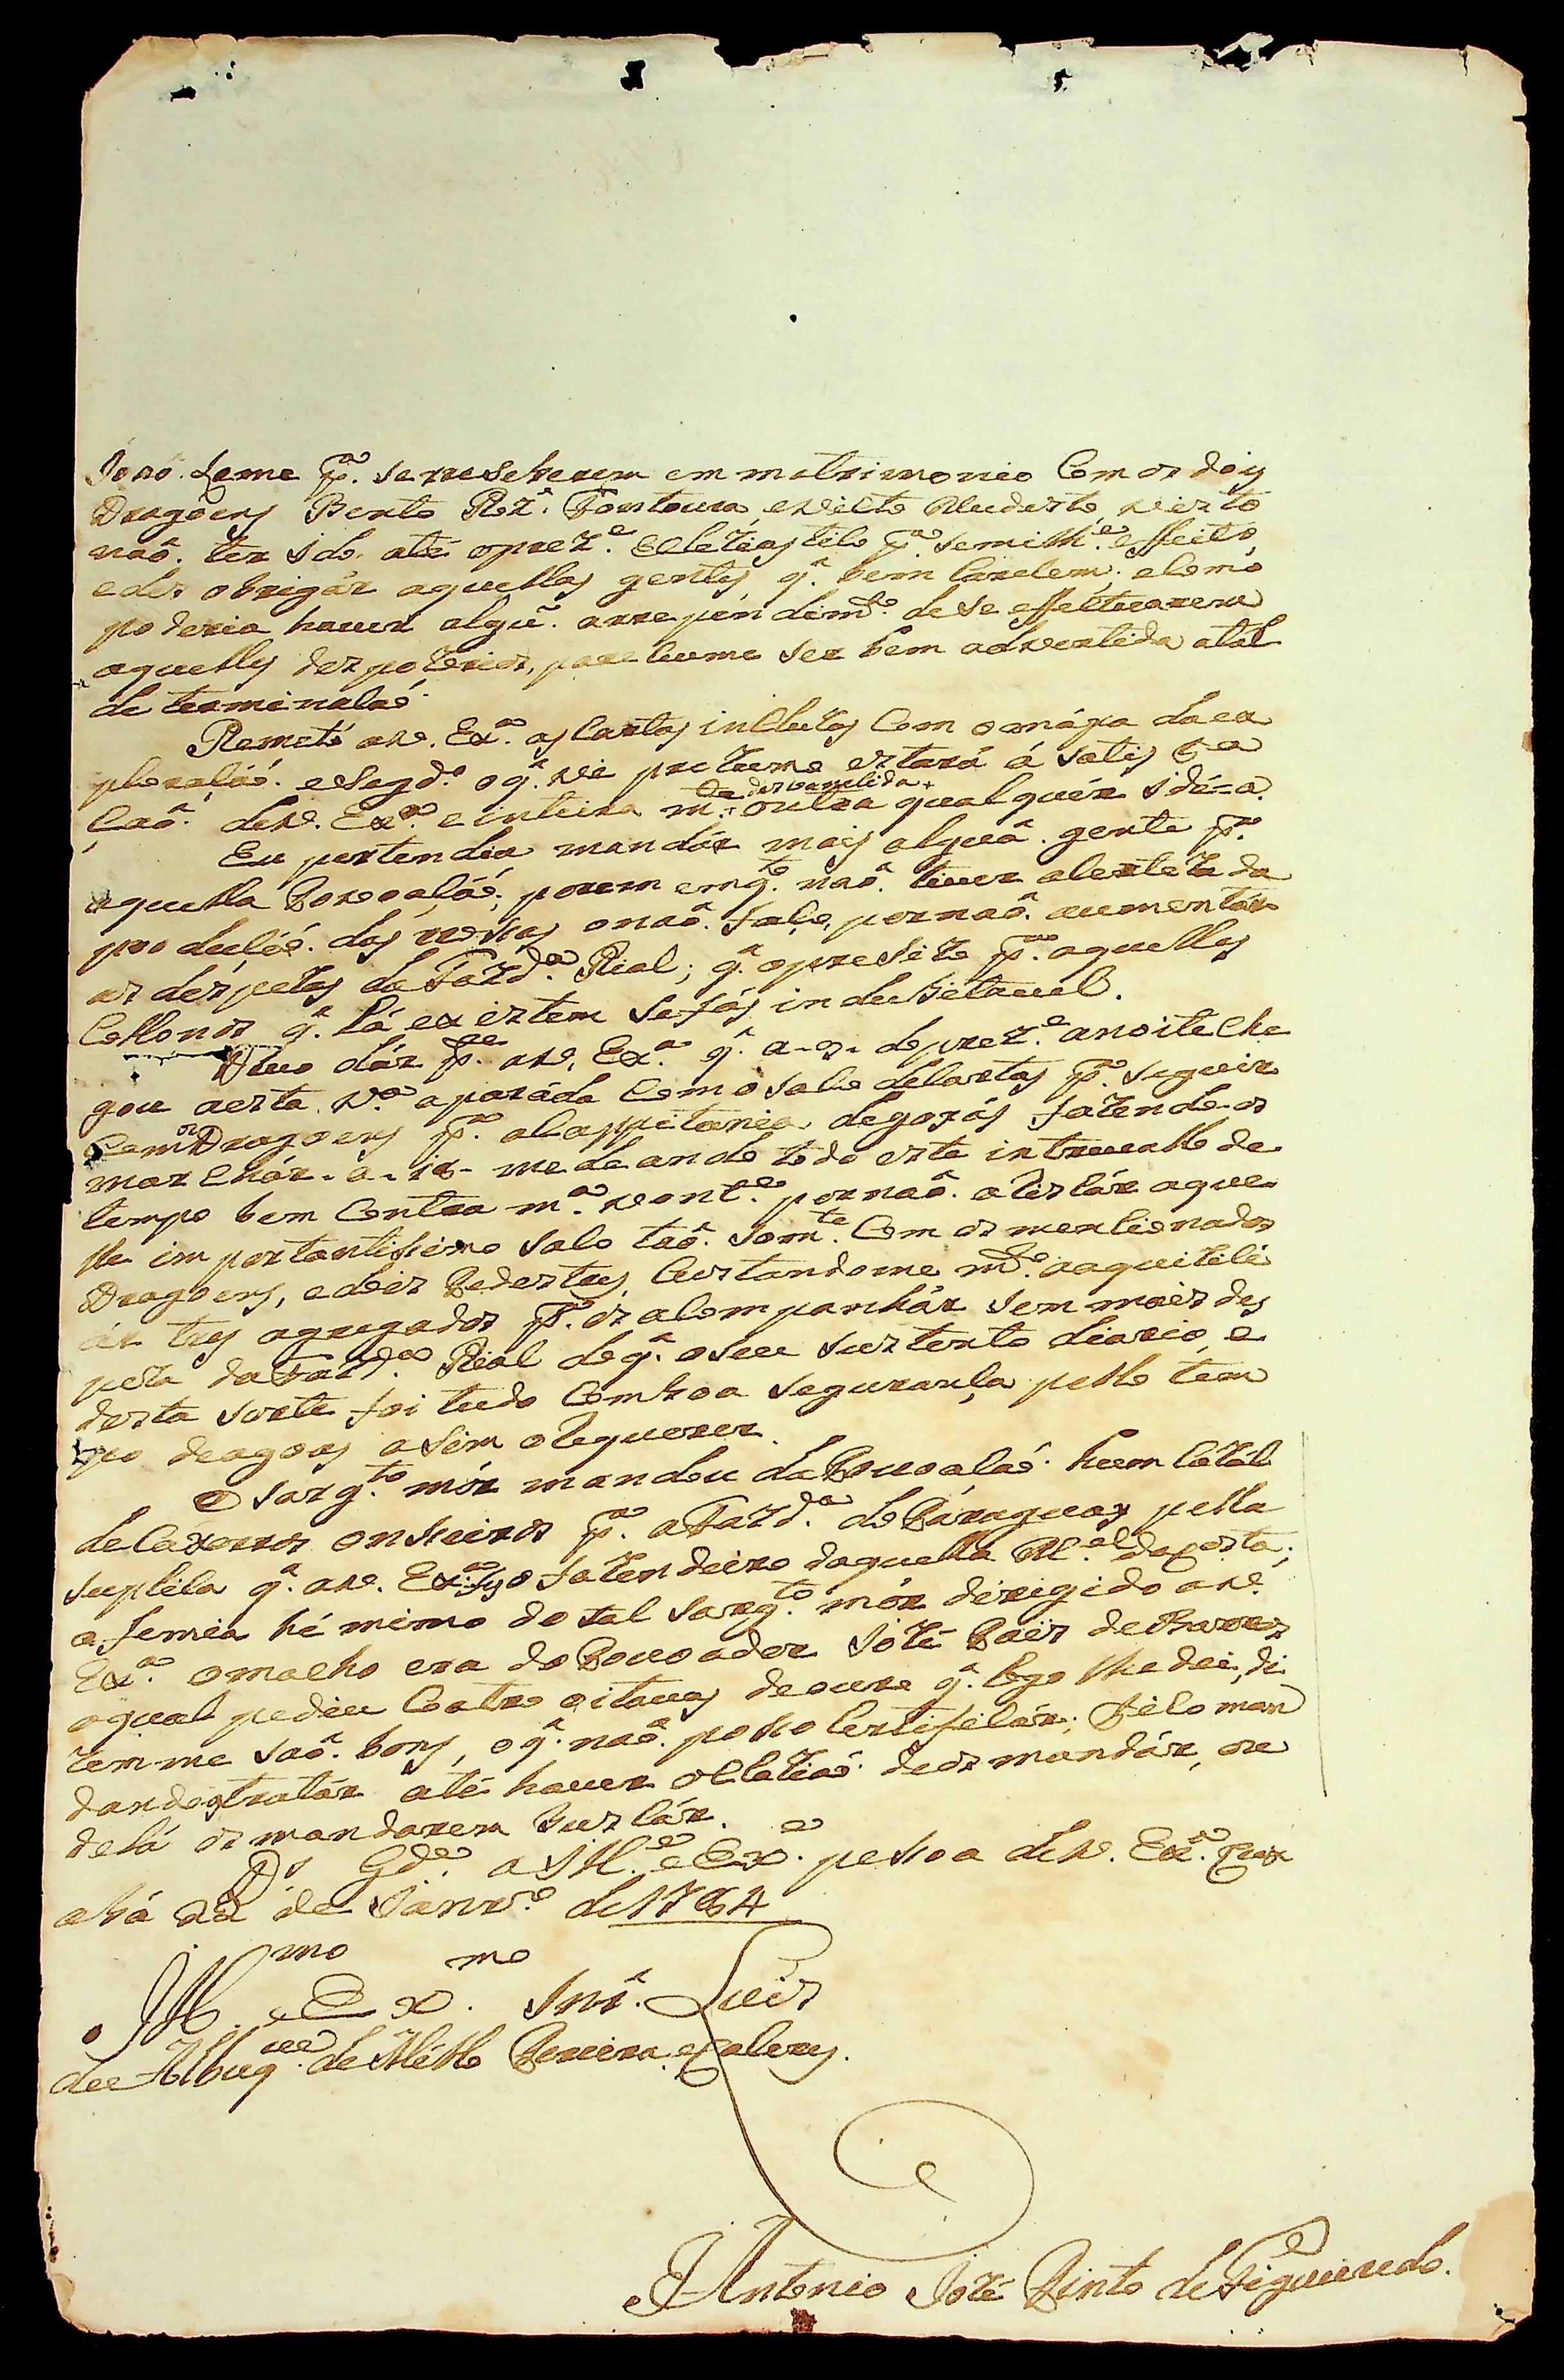 João Leme p.ª se reseberem em matrimonio Com os dois
Dragoens Bento Roz̃. Fontoura, evicto Mudesto, visto
naõ. ter sido até oprez.e Ecleziastico p.ª semilh.e effeito,
edes obrigár aquellas gentes, q̃. bem Carecem; ecomo
poderia haver algũ. arrependim.to de se effectuarem
aquelles despozorios, pareceume ser bem advertida atal
determinacaó.
Remetó aV. Ex.ª as Cartas incluzas Com omápa daex
ploracáó. eSegd.o oq̃. vi prezumo estará á Satisfa
Caõ. deV. Ex.ª einteira m.te desvanecida outra qualquér idéia.
Eu pertendia mandár mais alguã. gente p.ª
aquella Povoaçáó; porem emq.to naõ. tiver acerteza da
produçáó. das rossas onaõ. faço, pornaõ. aumentár
as despezas da Fazd.ª Rial; q̃. opresizo p.ª aquelles
Collonos q̃. lá existem sefás indubitavel.
Devo dár p.te aV. Ex.ª q̃. a-9- doprez.e anoite Che
gou aesta V.ª aparáda Comosaco decartas p.ª seguir
Com os Dragoens p.ª aCappitania degoyás fazendo-os
marchár-a-18- mediando todo este intrevallo de
tempo bem Contra m.ª vont.e pornaõ. arriscár aque
lle importantissimo saco taõ. som.te Com os mencionados
Dragoens, edois Pedestres, Custandome m.to aaquiscici
ár tres agregados p.ª os acompanhár sem mais des
peza daFazd.ª Rial deq̃. oseu sustento diario, e
desta sorte foi tudo Comboa segurança pello tem
po deagoas asim orequerer.
O Sarg.to mór mandou daPovoaçáó. hum Cazál
deCaxorros onsseiros p.ª aFazd.ª doParaguay pella
suplica q̃. aV. Ex.ª fes ofazendeiro daquella R.al daposta;
afemia hé mimo do tal Sarg.to mór dirigido aV.
Ex.ª omacho era doPovoador Jozé Paes deBarros
oqual pediu Coatro oitavas deouro q̃. logo lhedei, di
zemme saõ. bons, oq̃. naõ. posso Certificár; Fico man
dandoos tratár até haver ocaziaó. deos mandár, ou
delá os mandarem buscár.
D.s G.de a Ill.e e Ex.ª pessoa deV. Ex.ª Cuy
abá 22 de Janr.o de 1784
Ill.mo e Ex.mo Snr̃. Luis
de Albuq.ue de Mello Pereira eCaceres.
Antonio Jozé Pinto deFigueiredo.